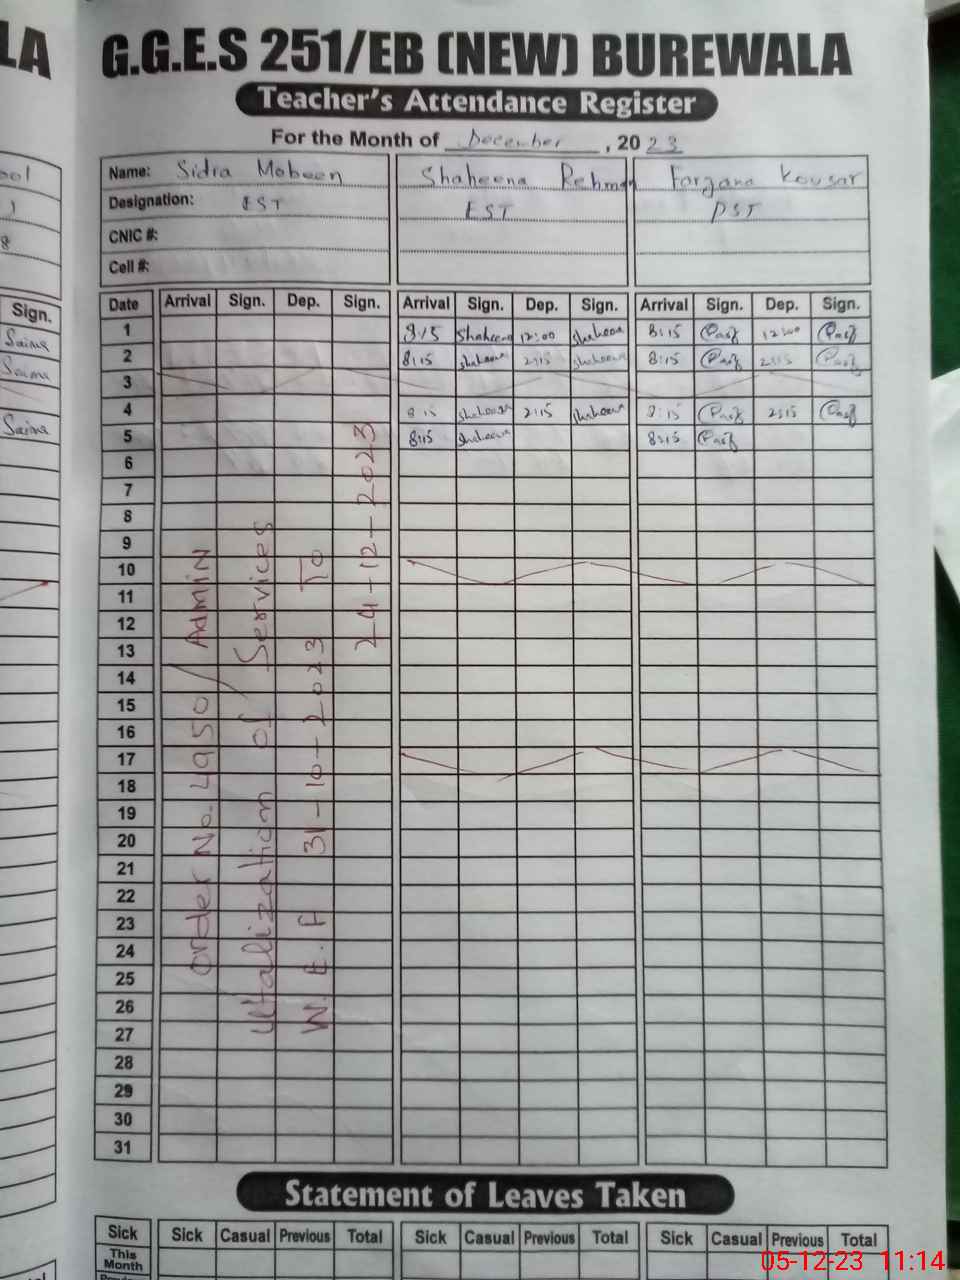 LA
G.G.E.S 251/EB (NEW) BUREWALA
Teacher's Attendance Register
For the Month of December, 2023
Name: Sidra Mobeen Shaheena Rehman Farzana Kousar
Designation: EST EST PST
CNIC #:
Cell #:
Sign.
Saima
Saima
Saima
Date Arrival Sign. Dep. Sign. Arrival Sign. Dep. Sign. Arrival Sign. Dep. Sign.
1 8:15 Shaheena 12:00 Shaheena 8:15 12:00
2 8:15 Shaheena 2:15 Shaheena 8:15 2:15
3
4 8:15 Shaheena 2:15 Shaheena 8:15 2:15
5 8:15 Shaheena 8:15
6
7
8
9
10
11
12
13
14
15
16
17
18
19
20
21
22
23
24
25
26
27
28
29
30
31
Order No. 4950/Admin
Utalization of Services
W.E.F 31-10-2023 To
24-12-2023
Statement of Leaves Taken
Sick Sick Casual Previous Total Sick Casual Previous Total Sick Casual Previous Total
This Month
05-12-23 11:14